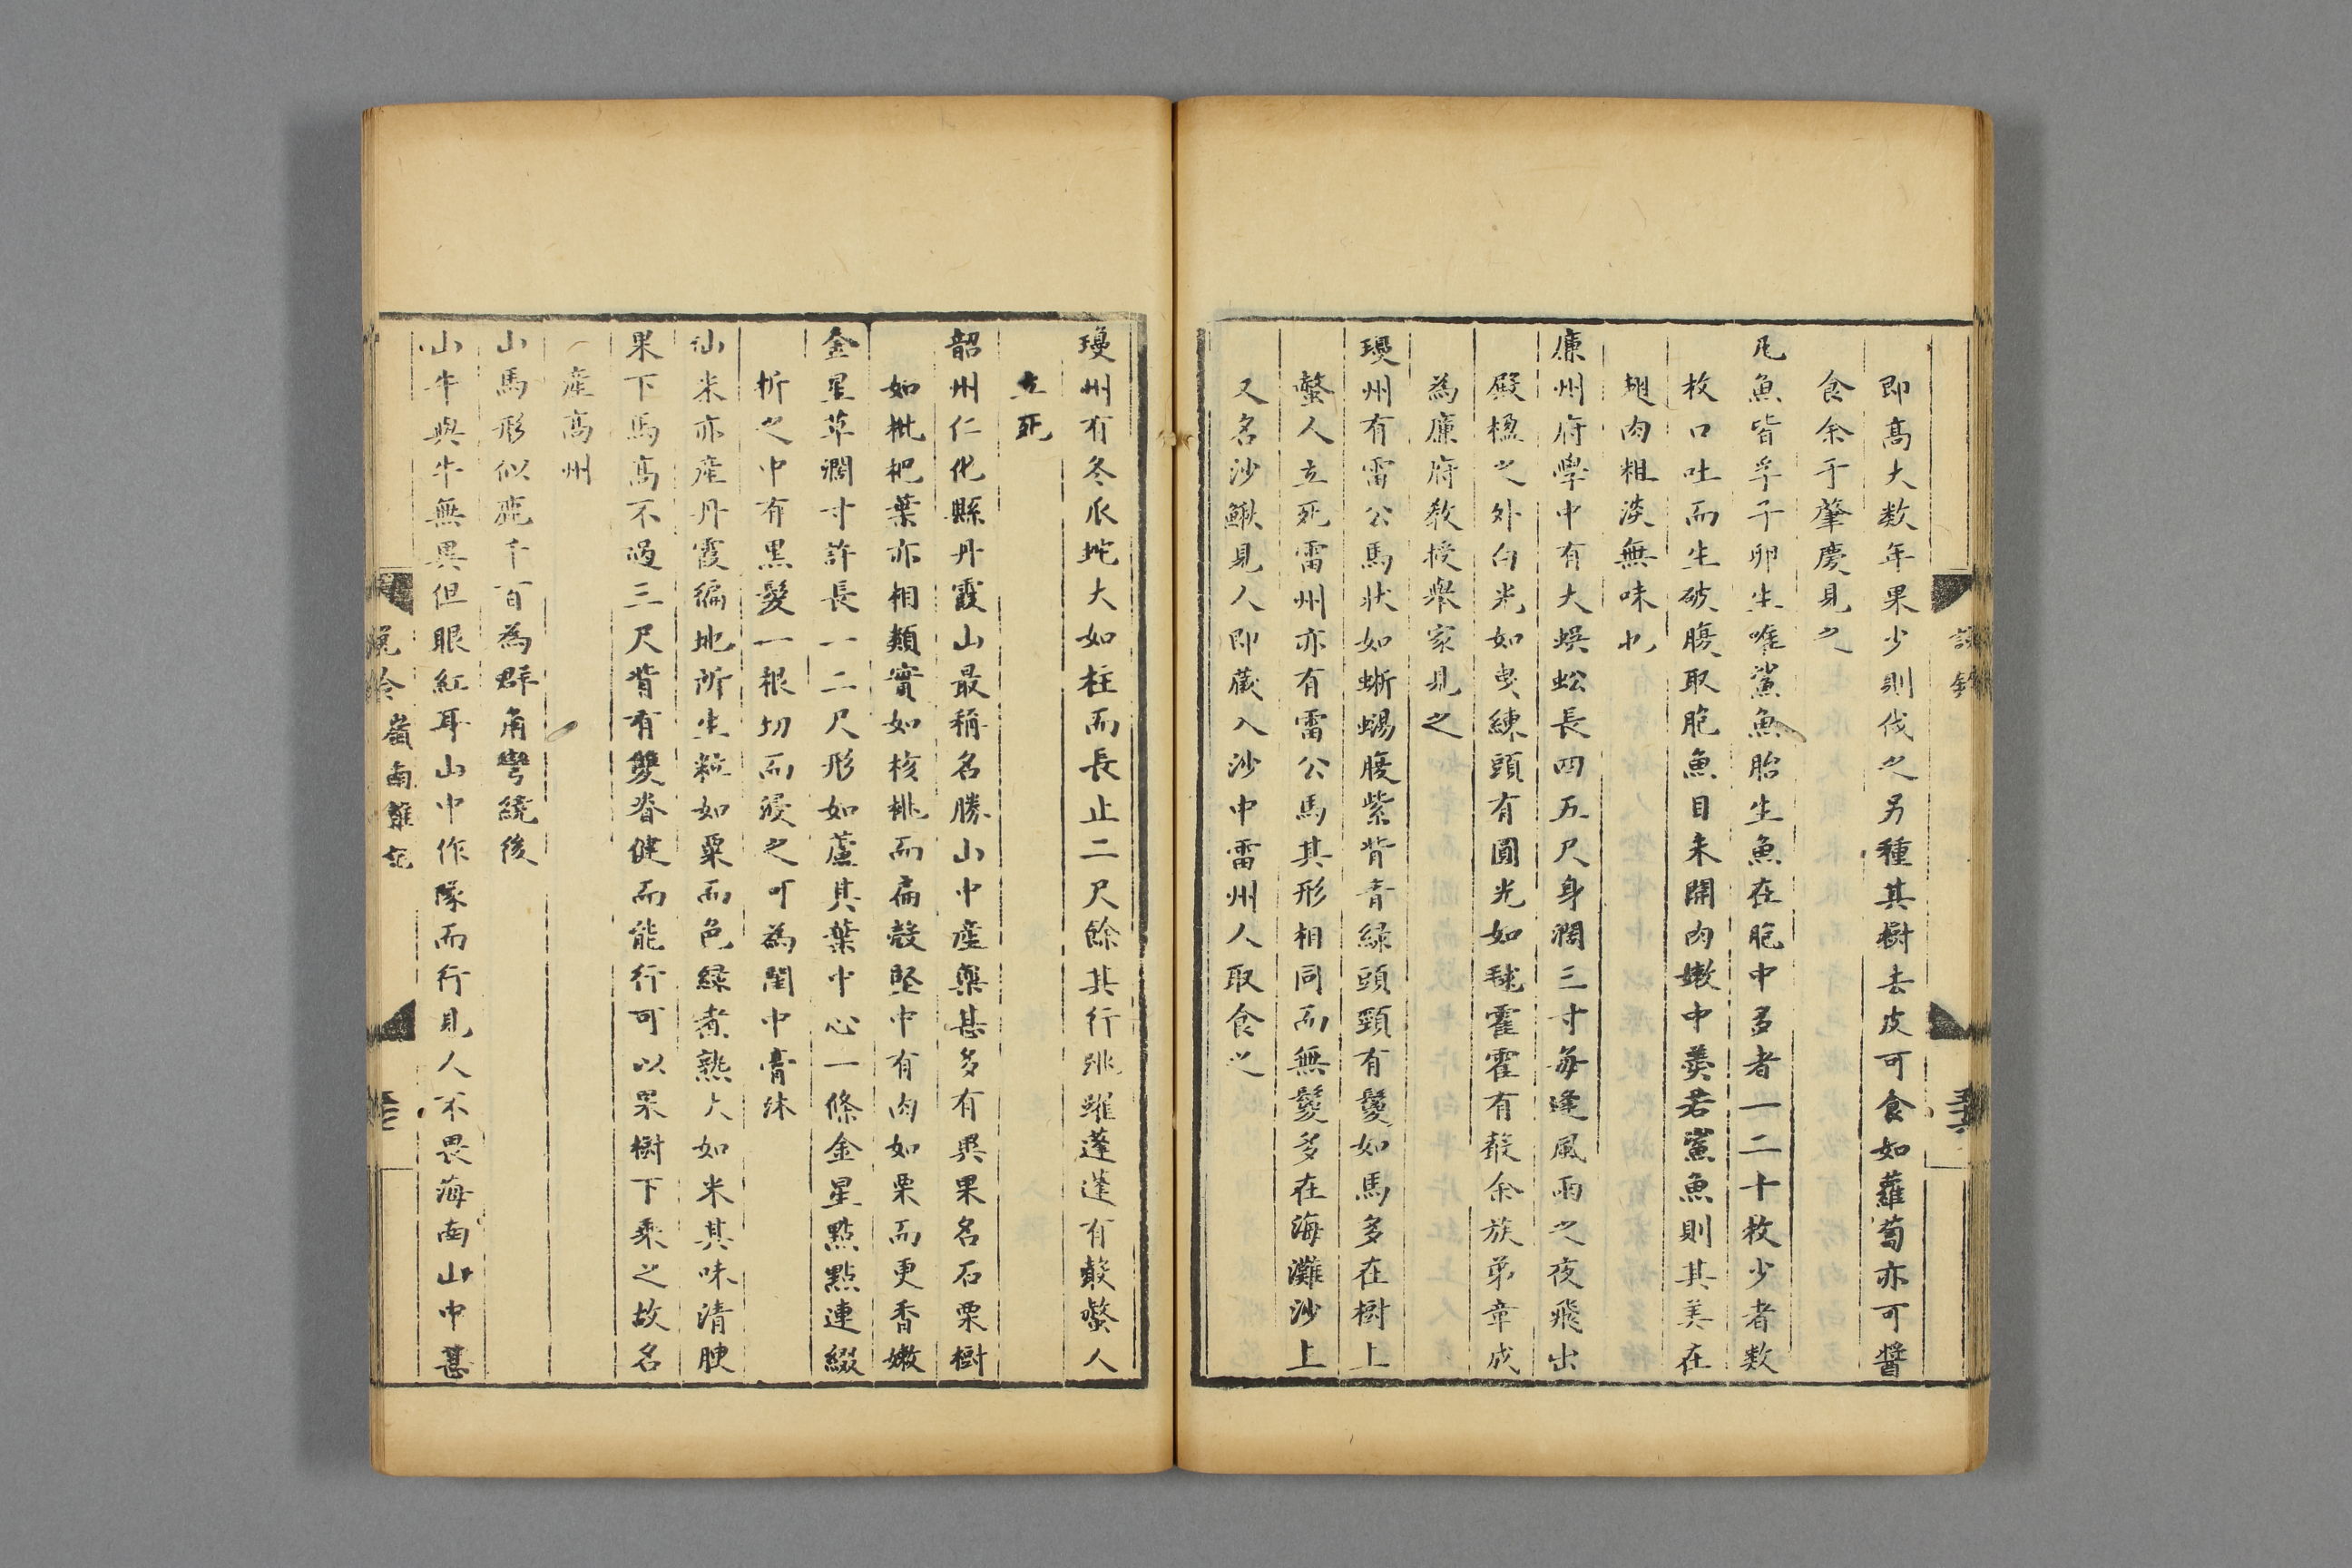 即高大数年果少則伐之另種其樹去皮可食如蘿蔔亦可醬
食余于肇慶見之
凡魚皆孚子卵生唯鯊魚胎生魚在胞中多者一二十枚少者数
枚口吐而生破腹取胞魚目未開肉嫩中羮若鯊魚則其美在
翅肉粗淡無味也
廉州府學中有大蜈蚣長四五尺身濶三寸每逢風雨之夜飛出
殿楹之外白光如曳練頭有圓光如毬霍霍有聲余族弟章成
為廉府教授舉家見之
瓊州有雷公馬狀如蜥蜴腹紫背青緑頭頸有鬉如馬多在樹上
螫人立死雷州亦有雷公馬其形相同而無鬉多在海灘沙上
又名沙鰍見人即藏入沙中雷州人取食之
瓊州有冬瓜蛇大如柱而長止二尺餘其行跳躍蓬蓬有聲螫人
立死
韶州仁化縣丹霞山最稱名勝山中產藥甚多有異果名石栗樹
如枇杷葉亦相類實如核桃而扁殼堅中有肉如栗而更香嫩
金星草濶寸許長一二尺形如蘆其葉中心一條金星點點連綴
折之中有黑髮一根切而浸之可為閨中膏沐
仙米亦產丹霞徧地所生粒如粟而色緑煮熟大如米其味清腴
果下馬高不過三尺背有雙脊健而能行可以果樹下乘之故名
產高州
山馬形似鹿千百為群角彎繞後
山牛與牛無異但眼紅耳山中作隊而行見人不畏海南山中甚
說鈴 嶺南雜記